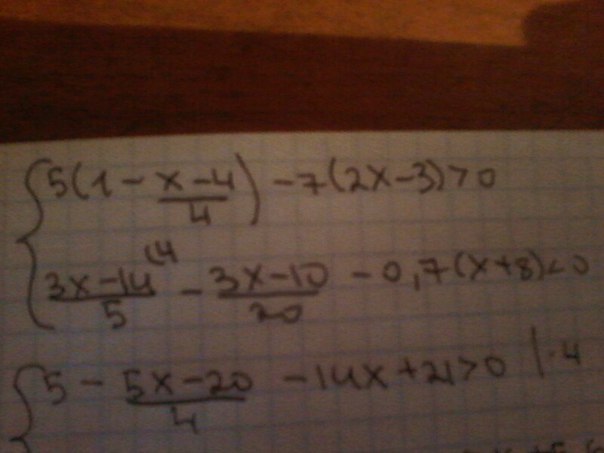 { 5(1 - (x-4)/4) - 7(2x-3) > 0
(3x-14)/5 (4 - (3x-10)/20 - 0,7(x+8) < 0
{ 5 - (5x-20)/4 - 14x + 21 > 0 | · 4